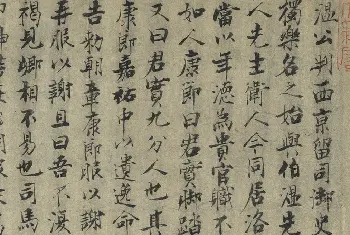 溫公判西京留司御史
獨樂名之始與伯溫先
人先生衛人今同居洛
當以年德為貴官職不
如人康節曰君實腳踏
又曰君實九分人也其
康節嘉祐中以遺逸命
告敕朝章康節服以謝
再服以謝且曰吾不復
褐見卿相不易也司馬